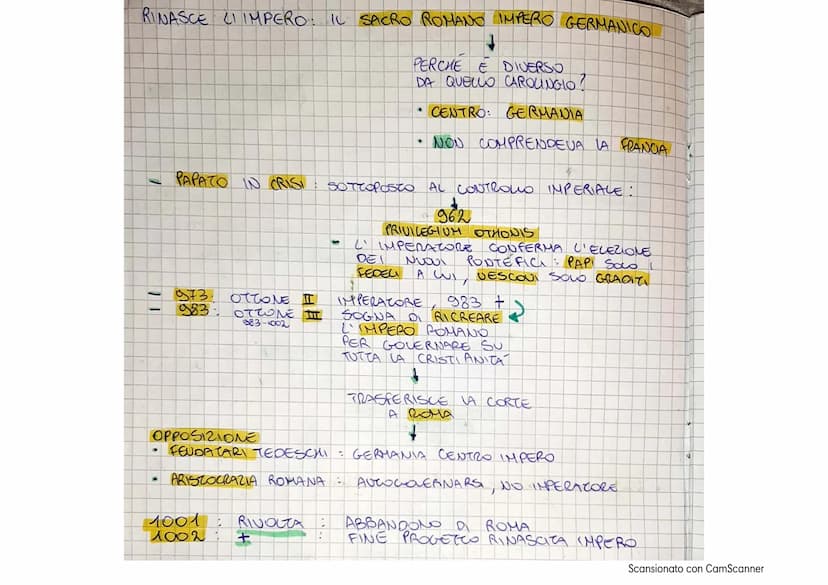 RINASCE L'IMPERO: IL SACRO ROMANO IMPERO GERMANICO
↓
PERCHÉ È DIVERSO
DA QUELLO CAROLINGIO?
• CENTRO: GERMANIA
• NON COMPRENDEVA LA FRANCIA
- PAPATO IN CRISI: SOTTOPOSTO AL CONTROLLO IMPERIALE:
↓
962
PRIVILEGIUM OTHONIS
- L'IMPERATORE CONFERMA L'ELEZIONE
DEI NUOVI PONTEFICI: PAPI SOLO I
FEDELI A LUI, VESCOVI SOLO GRADITI
- 973: OTTONE II IMPERATORE, 983 +
- 983: OTTONE III SOGNA DI RICREARE
983-1002
L'IMPERO ROMANO
PER GOVERNARE SU
TUTTA LA CRISTIANITÀ
↓
TRASFERISCE LA CORTE
A ROMA
↓
OPPOSIZIONE
• FEUDATARI TEDESCHI: GERMANIA CENTRO IMPERO
• ARISTOCRAZIA ROMANA: AUTOGOVERNARSI, NO IMPERATORE
1001: RIVOLTA: ABBANDONO DI ROMA
1002: + : FINE PROGETTO RINASCITA IMPERO
Scansionato con CamScanner